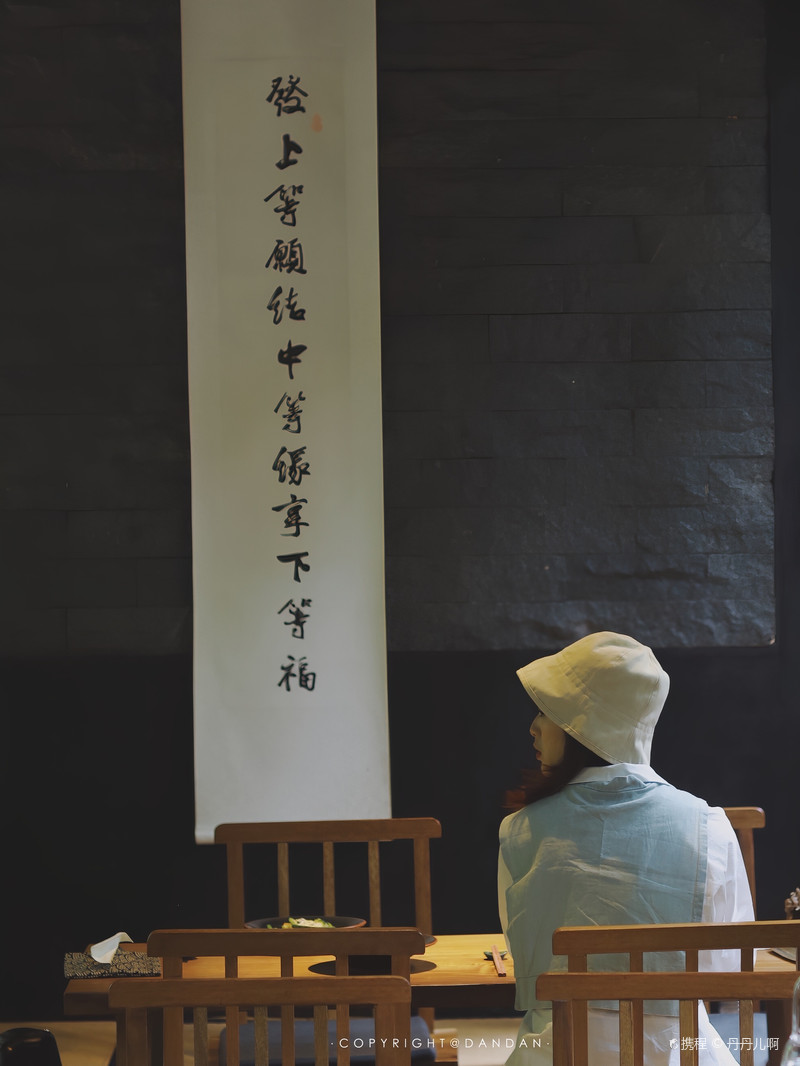 發上等願結中等緣享下等福
·COPYRIGHT@DANDAN·
携程 © 丹丹儿啊